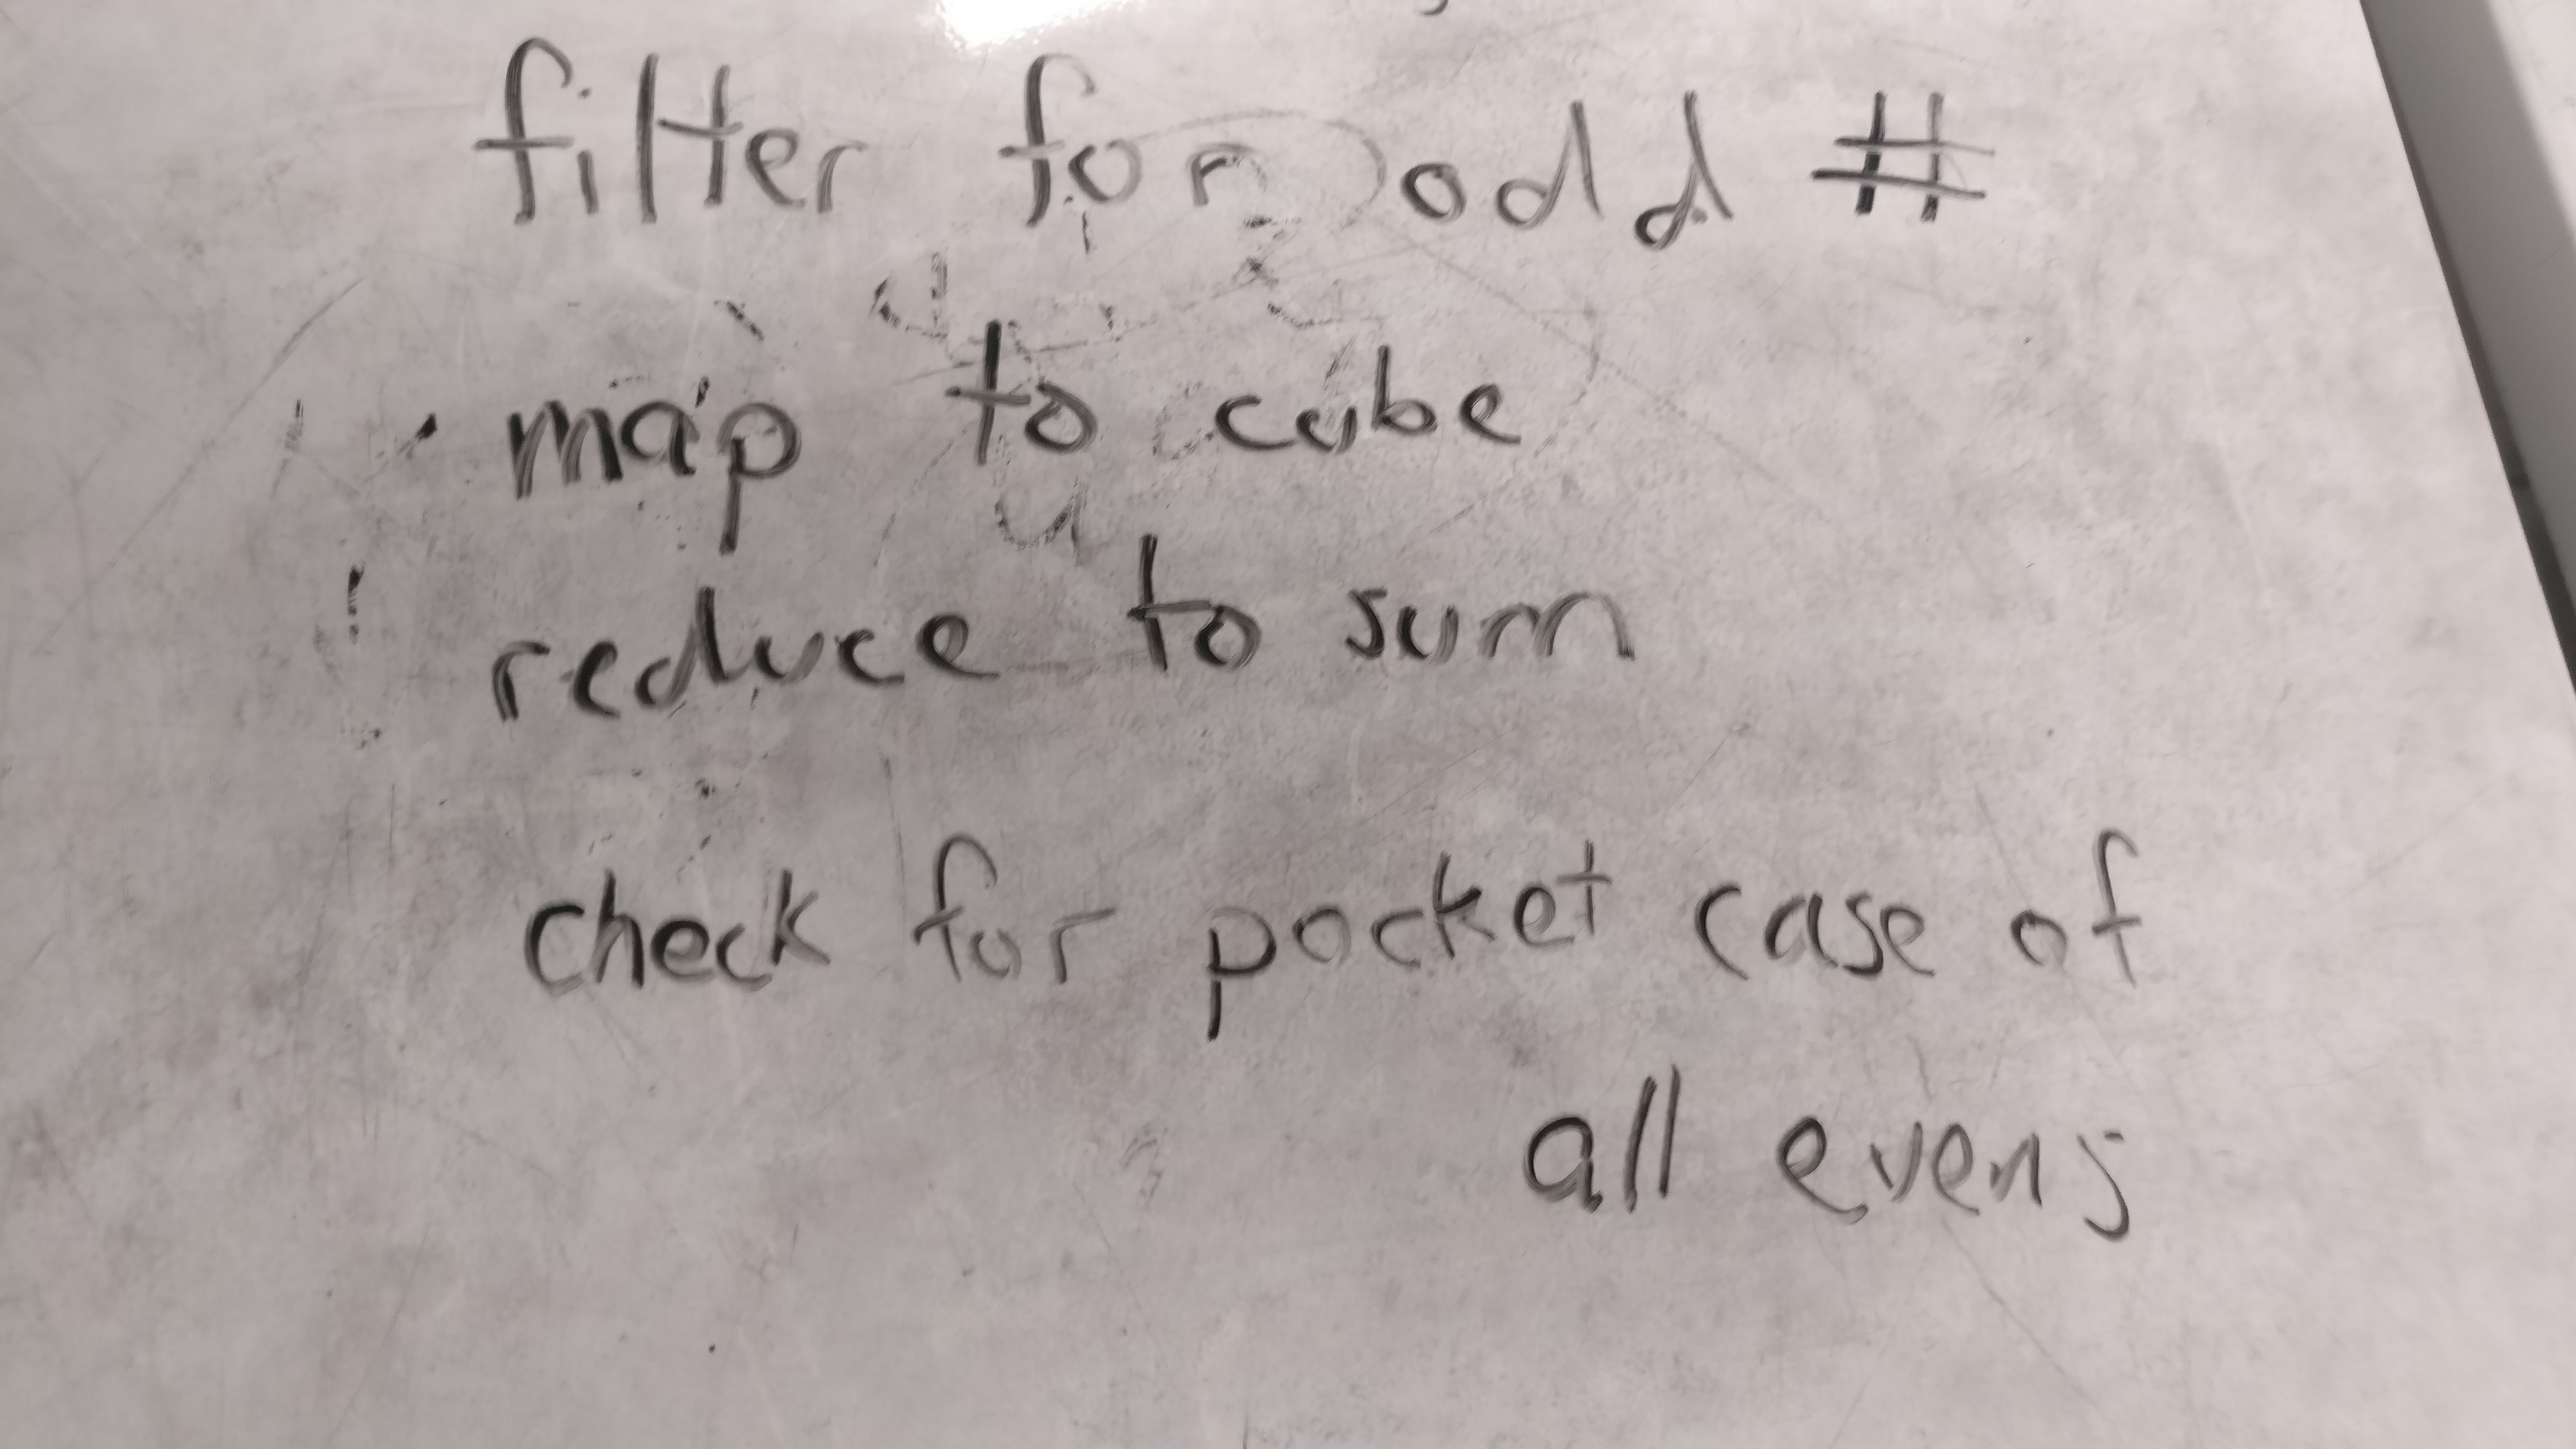 filter for odd #
map to cube
reduce to sum
check for pocket case of
all evens